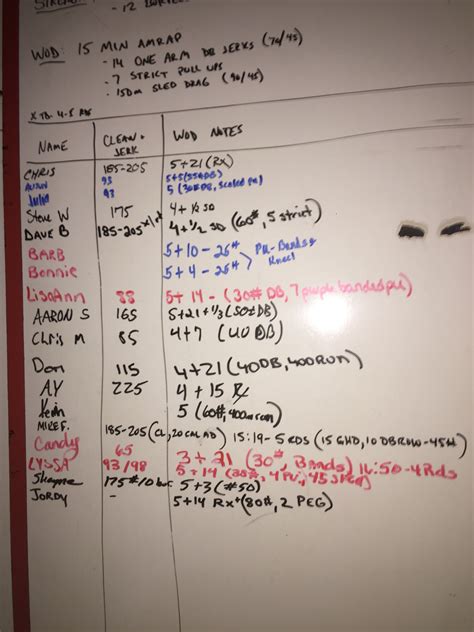 - 12
WOD: 15 MIN AMRAP
- 14 ONE ARM DB JERKS (70/45)
- 7 STRICT PULL UPS
- 150m SLED DRAG (90/45)
NAME CLEAN + JERK WOD NOTES
CHRIS 185-205 5+21 (RX)
93 5+5 (55#DB)
Julie 93 5 (30#DB, Scaled pu)
Steve W 175 4+ 1/2 SD
DAVE B 185-205 4+ 1/2 SD (60#, 5 strict)
BARB 5+10 - 25#
Bennie 5+4 - 25# Pu-Bands &
LisaAnn 88 5+14 - (30# DB, 7 purple banded pu)
AARON S 165 5+21+1/3 (50# DB)
Chris M 85 4+7 (40DB)
Don 115 4+21 (40DB, 400RUN)
AY 225 4+15 Rx
Kevin 5 (60#, 400m run)
MIKE F. 185-205 (CL, 20 CAL AD) 15:19-5 RDS (15 GHD, 10 DB ROW-45#)
Candy 65 3+21 (30#, 3 Bands) 16:50-4 Rds
LYSSA 93/98 5+14
Shayna 175 5+3 (#50)
JORDY - 5+14 Rx+ (80#, 2 PEG)